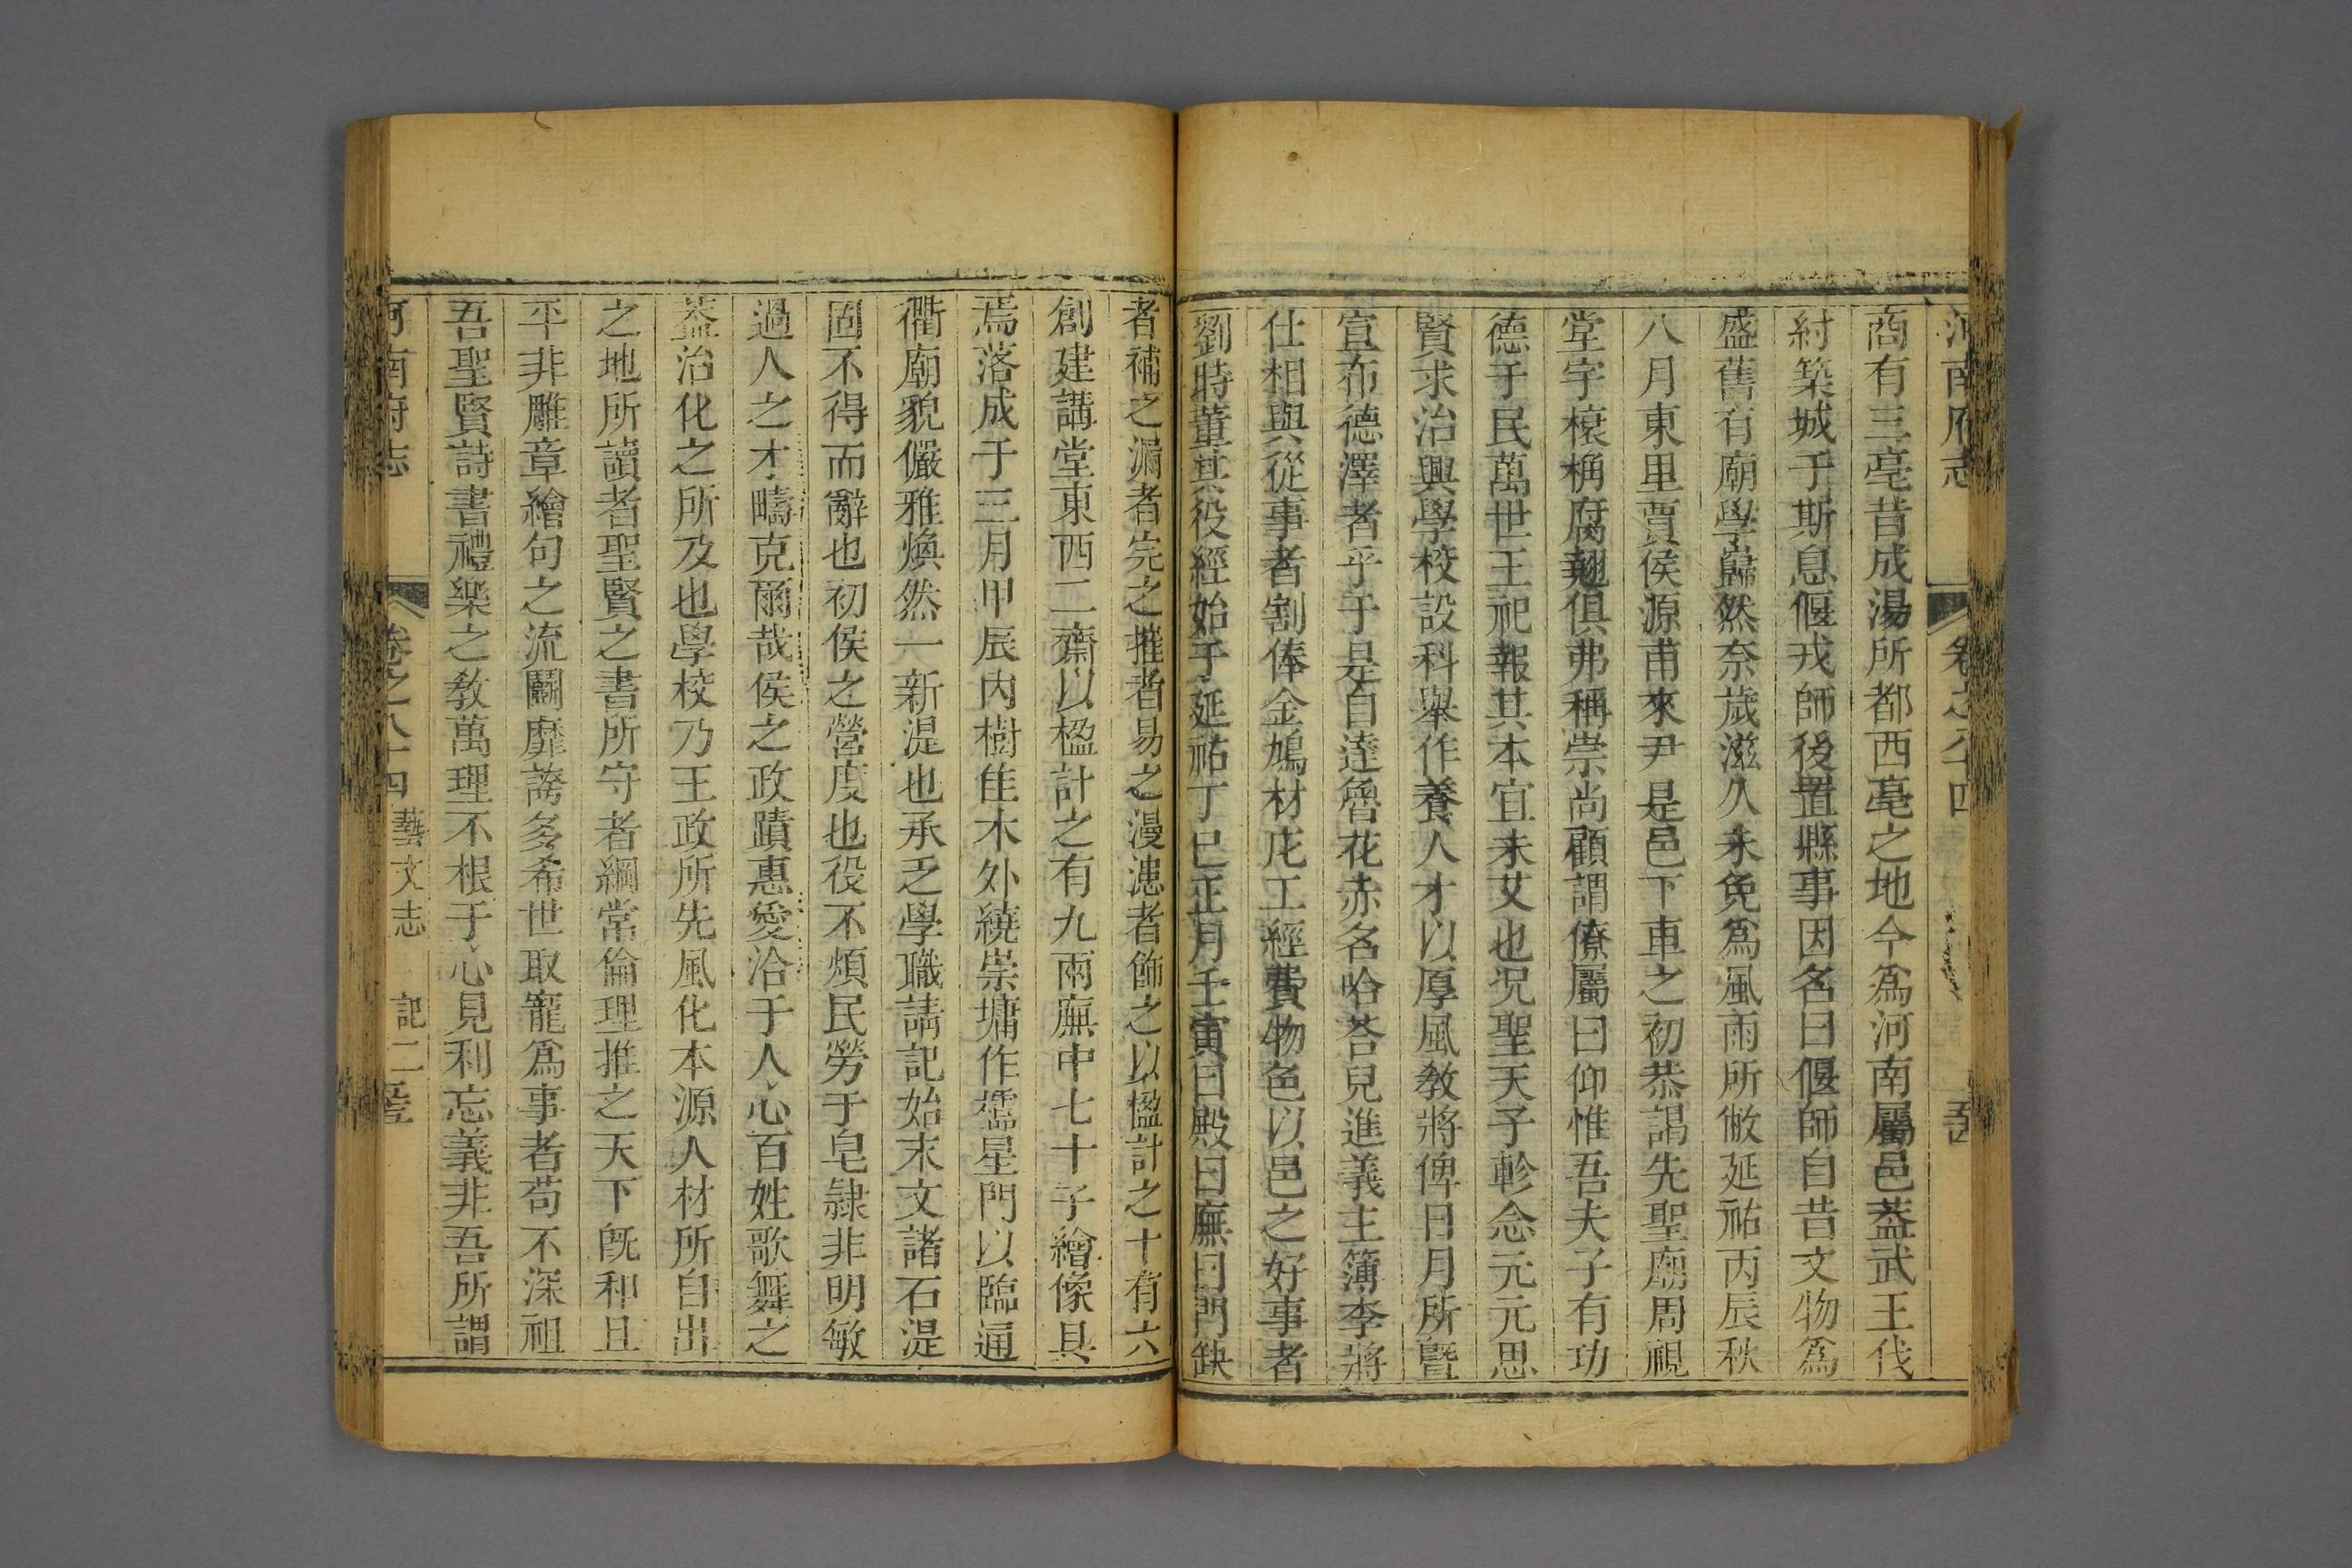 河南府志 卷之八十四
商有三亳昔成湯所都西亳之地今爲河南屬邑葢武王伐
紂築城于斯息偃戎師後置縣事因名曰偃師自昔文物爲
盛舊有廟學巋然奈歲滋久未免爲風雨所僘延祐丙辰秋
八月東里賈侯源甫來尹是邑下車之初恭謁先聖廟周視
堂宇榱桷腐翹俱弗稱崇尚顧謂僚屬曰仰惟吾夫子有功
德于民萬世王祀報其本宜未艾也况聖天子軫念元元思
賢求治興學校設科舉作養人才以厚風敎將俾日月所曁
宣布德澤者乎于是自達魯花赤名哈荅兒進義主簿李將
仕相與從事者割俸金鳩材庀工經費物色以邑之好事者
劉時董其役經始于延祐丁巳正月壬寅曰殿曰廡曰門缺
者補之漏者完之摧者易之漫漶者飾之以楹計之十有六
創建講堂東西二齋以楹計之有九兩廡中七十子繪像具
焉落成于三月甲辰内樹佳木外繞崇墉作櫺星門以臨通
衢廟貌儼雅煥然一新湜也承乏學職請記始末文諸石湜
固不得而辭也初侯之營度也役不煩民勞于皂隸非明敏
過人之才疇克爾哉侯之政蹟惠愛洽于人心百姓歌舞之
葢治化之所及也學校乃王政所先風化本源人材所自出
之地所讀者聖賢之書所守者綱常倫理推之天下旣和且
平非雕章繪句之流鬭靡誇多希世取寵爲事者苟不深祖
吾聖賢詩書禮樂之敎萬理不根于心見利忘義非吾所謂
河南府志 卷之八十四 藝文志 記二